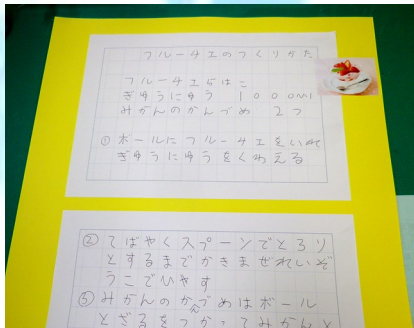 フルーチェのつくりかた
フルーチェ5はこ
ぎゅうにゅう 1000ml
みかんのかんづめ 2つ
① ボールにフルーチェをいれ
ぎゅうにゅうをくわえる
② てばやくスプーンでとろり
とするまでかきまぜれいぞ
うこでひやす
③ みかんのかんづめはボール
とざるをつかってみかんと